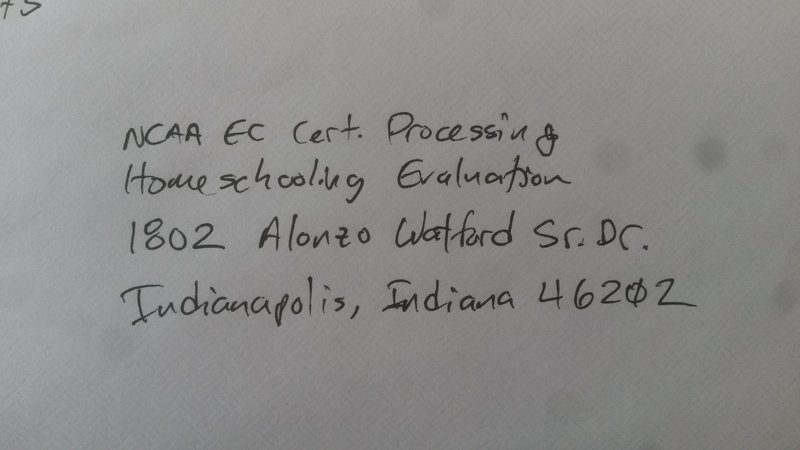 NCAA EC Cert. Processing
Homeschooling Evaluation
1802 Alonzo Watford Sr. Dr.
Indianapolis, Indiana 46202